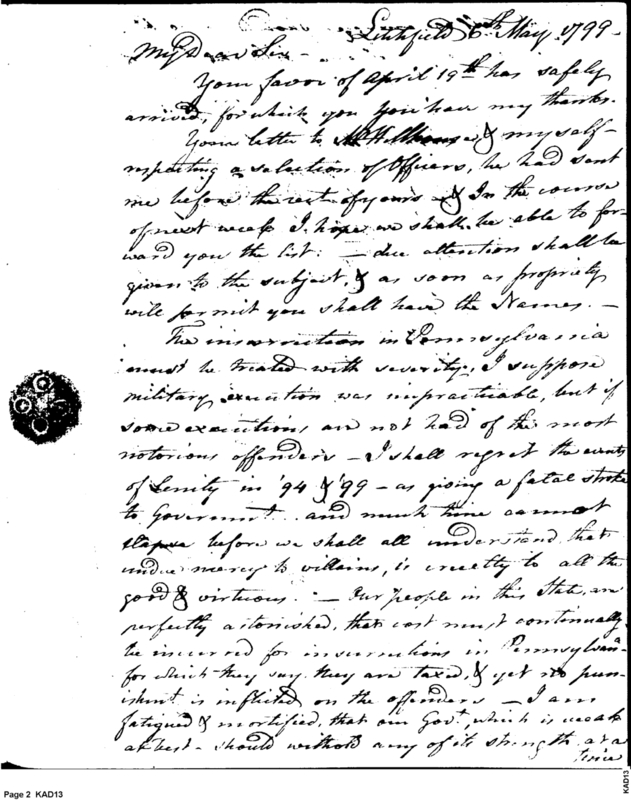 Litchfield 6th May 1799 -
My Dear Sir -
Your favor of April 19th has safely
arrived, for which you you have my thanks.
Your letter to & my self -
respecting a selection of Officers, he had sent
me before the rect. of yours & In the course
of next week I hope we shall be able to for-
ward you the list: - due attention shall be
given to the subject, & as soon as propriety
will permit you shall have the Names. -
The insurrection in Pennsylvania
must be treated with severity, I suppose
military execution was impracticable, but if
some executions are not had of the most
notorious offenders - I shall regret the events
of Lenity in '94 & '99 - as giving a fatal stroke
to Governmt. and much time cannot
elapse before we shall all understand, that
undue mercy to villains, is cruelty to all the
good & virtuous. - Our people in this State, are
perfectly astonished, that cost must continually
be incurred for insurrections in Pennsylvana
for which they say they are taxed, & yet no pun-
ishmt. is inflicted on the offenders - I am
fatigued & mortified, that our Govt. which is weak
at best - should withold any of its strength at a
time
Page 2 KAD13
KAD13